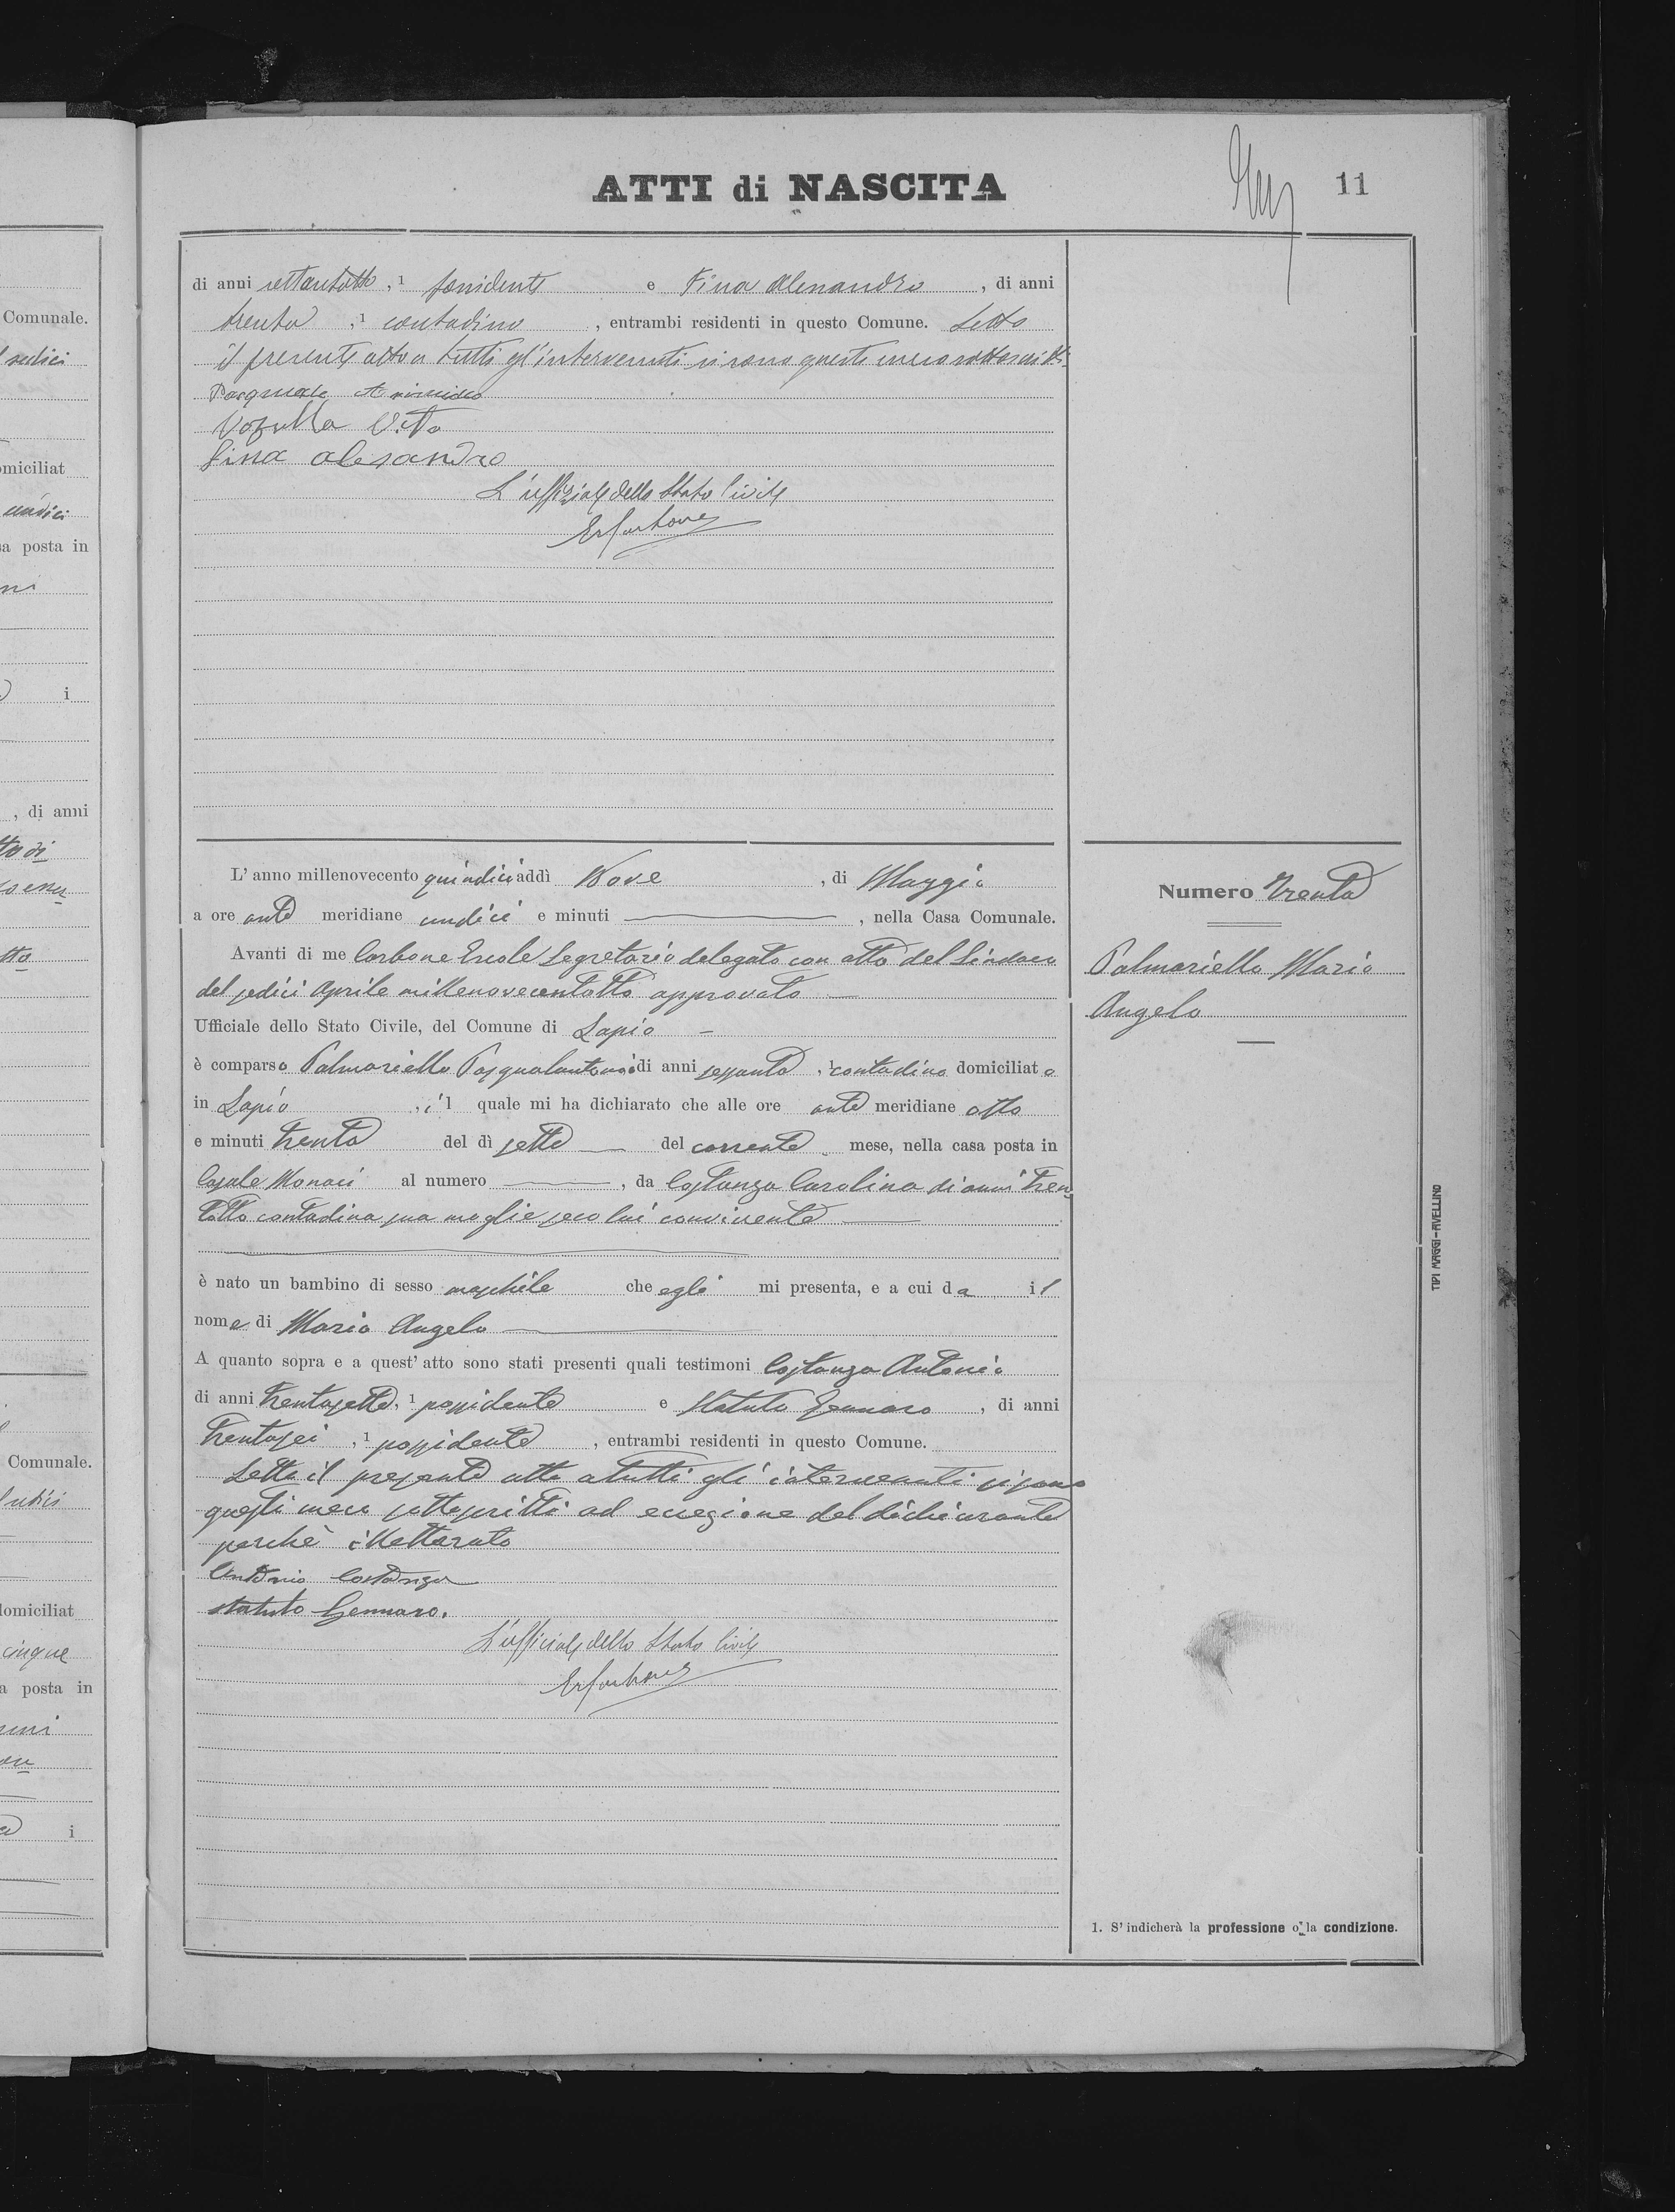 ATTI di NASCITA
11
di anni settantotto, 1 possidente e Fina Alessandro, di anni
trenta, 1 contadino, entrambi residenti in questo Comune. Letto
il presente atto a tutti gl'intervenuti si sono questi meco sottoscritti.
Pasquale
Vozella Vito
Fina alesandro
L'uffiziale dello Stato Civile
L' anno millenovecento quindici addì Nove, di Maggio
a ore ante meridiane undici e minuti —, nella Casa Comunale.
Avanti di me Carbone Ercole Segretario delegato con atto del Sindaco
del sedici Aprile millenovecentotto approvato —
Ufficiale dello Stato Civile, del Comune di Lapio -
è comparso Palmariello Pasqualantonio di anni sessanta, 1 contadino domiciliato
in Lapio, il quale mi ha dichiarato che alle ore ante meridiane otto
e minuti trenta del dì sette — del corrente mese, nella casa posta in
Casale Monaci al numero —, da Costanza Carolina di anni tren
totto contadina sua moglie seco lui convivente —
è nato un bambino di sesso maschile che egli mi presenta, e a cui da il
nome di Mario Angelo —
A quanto sopra e a quest' atto sono stati presenti quali testimoni Costanza Antonio
di anni trentasette, 1 possidente e Statuto Gennaro, di anni
trentasei, 1 possidente, entrambi residenti in questo Comune.
Letto il presente atto a tutti gli intervenuti si sono
questi meco sottoscritti ad eccezione del dichiarante
perchè illetterato
Antonio Costanza
Statuto Gennaro.
L'ufficiale dello Stato Civile
Numero Trenta
Palmariello Mario
Angelo
1. S' indicherà la professione o la condizione.
TIPI MAGGI-AVELLINO
Comunale.
sedici
omiciliat
undici
sa posta in
i
, di anni
Comunale.
domiciliat
cinque
a posta in
i